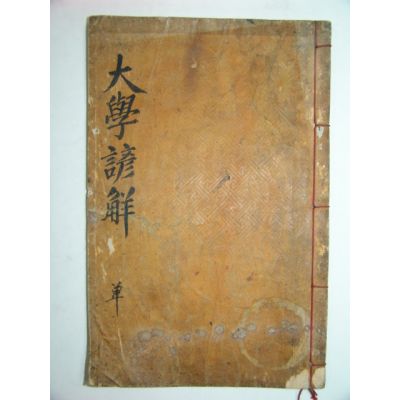 大學諺解
単